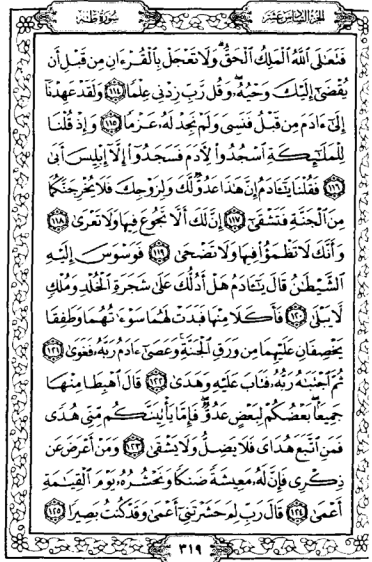 الجزء السادس عشر
سورة طه
فَتَعَٰلَى ٱللَّهُ ٱلْمَلِكُ ٱلْحَقُّ ۗ وَلَا تَعْجَلْ بِٱلْقُرْءَانِ مِن قَبْلِ أَن
يُقْضَىٰٓ إِلَيْكَ وَحْيُهُۥ ۖ وَقُل رَّبِّ زِدْنِى عِلْمًا ١١٤ وَلَقَدْ عَهِدْنَآ
إِلَىٰٓ ءَادَمَ مِن قَبْلُ فَنَسِىَ وَلَمْ نَجِدْ لَهُۥ عَزْمًا ١١٥ وَإِذْ قُلْنَا
لِلْمَلَٰٓئِكَةِ ٱسْجُدُوا۟ لِءَادَمَ فَسَجَدُوٓا۟ إِلَّآ إِبْلِيسَ أَبَىٰ
١١٦ فَقُلْنَا يَٰٓـَٔادَمُ إِنَّ هَٰذَا عَدُوٌّ لَّكَ وَلِزَوْجِكَ فَلَا يُخْرِجَنَّكُمَا
مِنَ ٱلْجَنَّةِ فَتَشْقَىٰٓ ١١٧ إِنَّ لَكَ أَلَّا تَجُوعَ فِيهَا وَلَا تَعْرَىٰ ١١٨
وَأَنَّكَ لَا تَظْمَؤُا۟ فِيهَا وَلَا تَضْحَىٰ ١١٩ فَوَسْوَسَ إِلَيْهِ
ٱلشَّيْطَٰنُ قَالَ يَٰٓـَٔادَمُ هَلْ أَدُلُّكَ عَلَىٰ شَجَرَةِ ٱلْخُلْدِ وَمُلْكٍ
لَّا يَبْلَىٰ ١٢٠ فَأَكَلَا مِنْهَا فَبَدَتْ لَهُمَا سَوْءَٰتُهُمَا وَطَفِقَا
يَخْصِفَانِ عَلَيْهِمَا مِن وَرَقِ ٱلْجَنَّةِ ۚ وَعَصَىٰٓ ءَادَمُ رَبَّهُۥ فَغَوَىٰ ١٢١
ثُمَّ ٱجْتَبَٰهُ رَبُّهُۥ فَتَابَ عَلَيْهِ وَهَدَىٰ ١٢٢ قَالَ ٱهْبِطَا مِنْهَا
جَمِيعًۢا ۖ بَعْضُكُمْ لِبَعْضٍ عَدُوٌّ ۖ فَإِمَّا يَأْتِيَنَّكُم مِّنِّى هُدًى
فَمَنِ ٱتَّبَعَ هُدَاىَ فَلَا يَضِلُّ وَلَا يَشْقَىٰ ١٢٣ وَمَنْ أَعْرَضَ عَن
ذِكْرِى فَإِنَّ لَهُۥ مَعِيشَةً ضَنكًا وَنَحْشُرُهُۥ يَوْمَ ٱلْقِيَٰمَةِ
أَعْمَىٰ ١٢٤ قَالَ رَبِّ لِمَ حَشَرْتَنِىٓ أَعْمَىٰ وَقَدْ كُنتُ بَصِيرًا ١٢٥
٣١٩